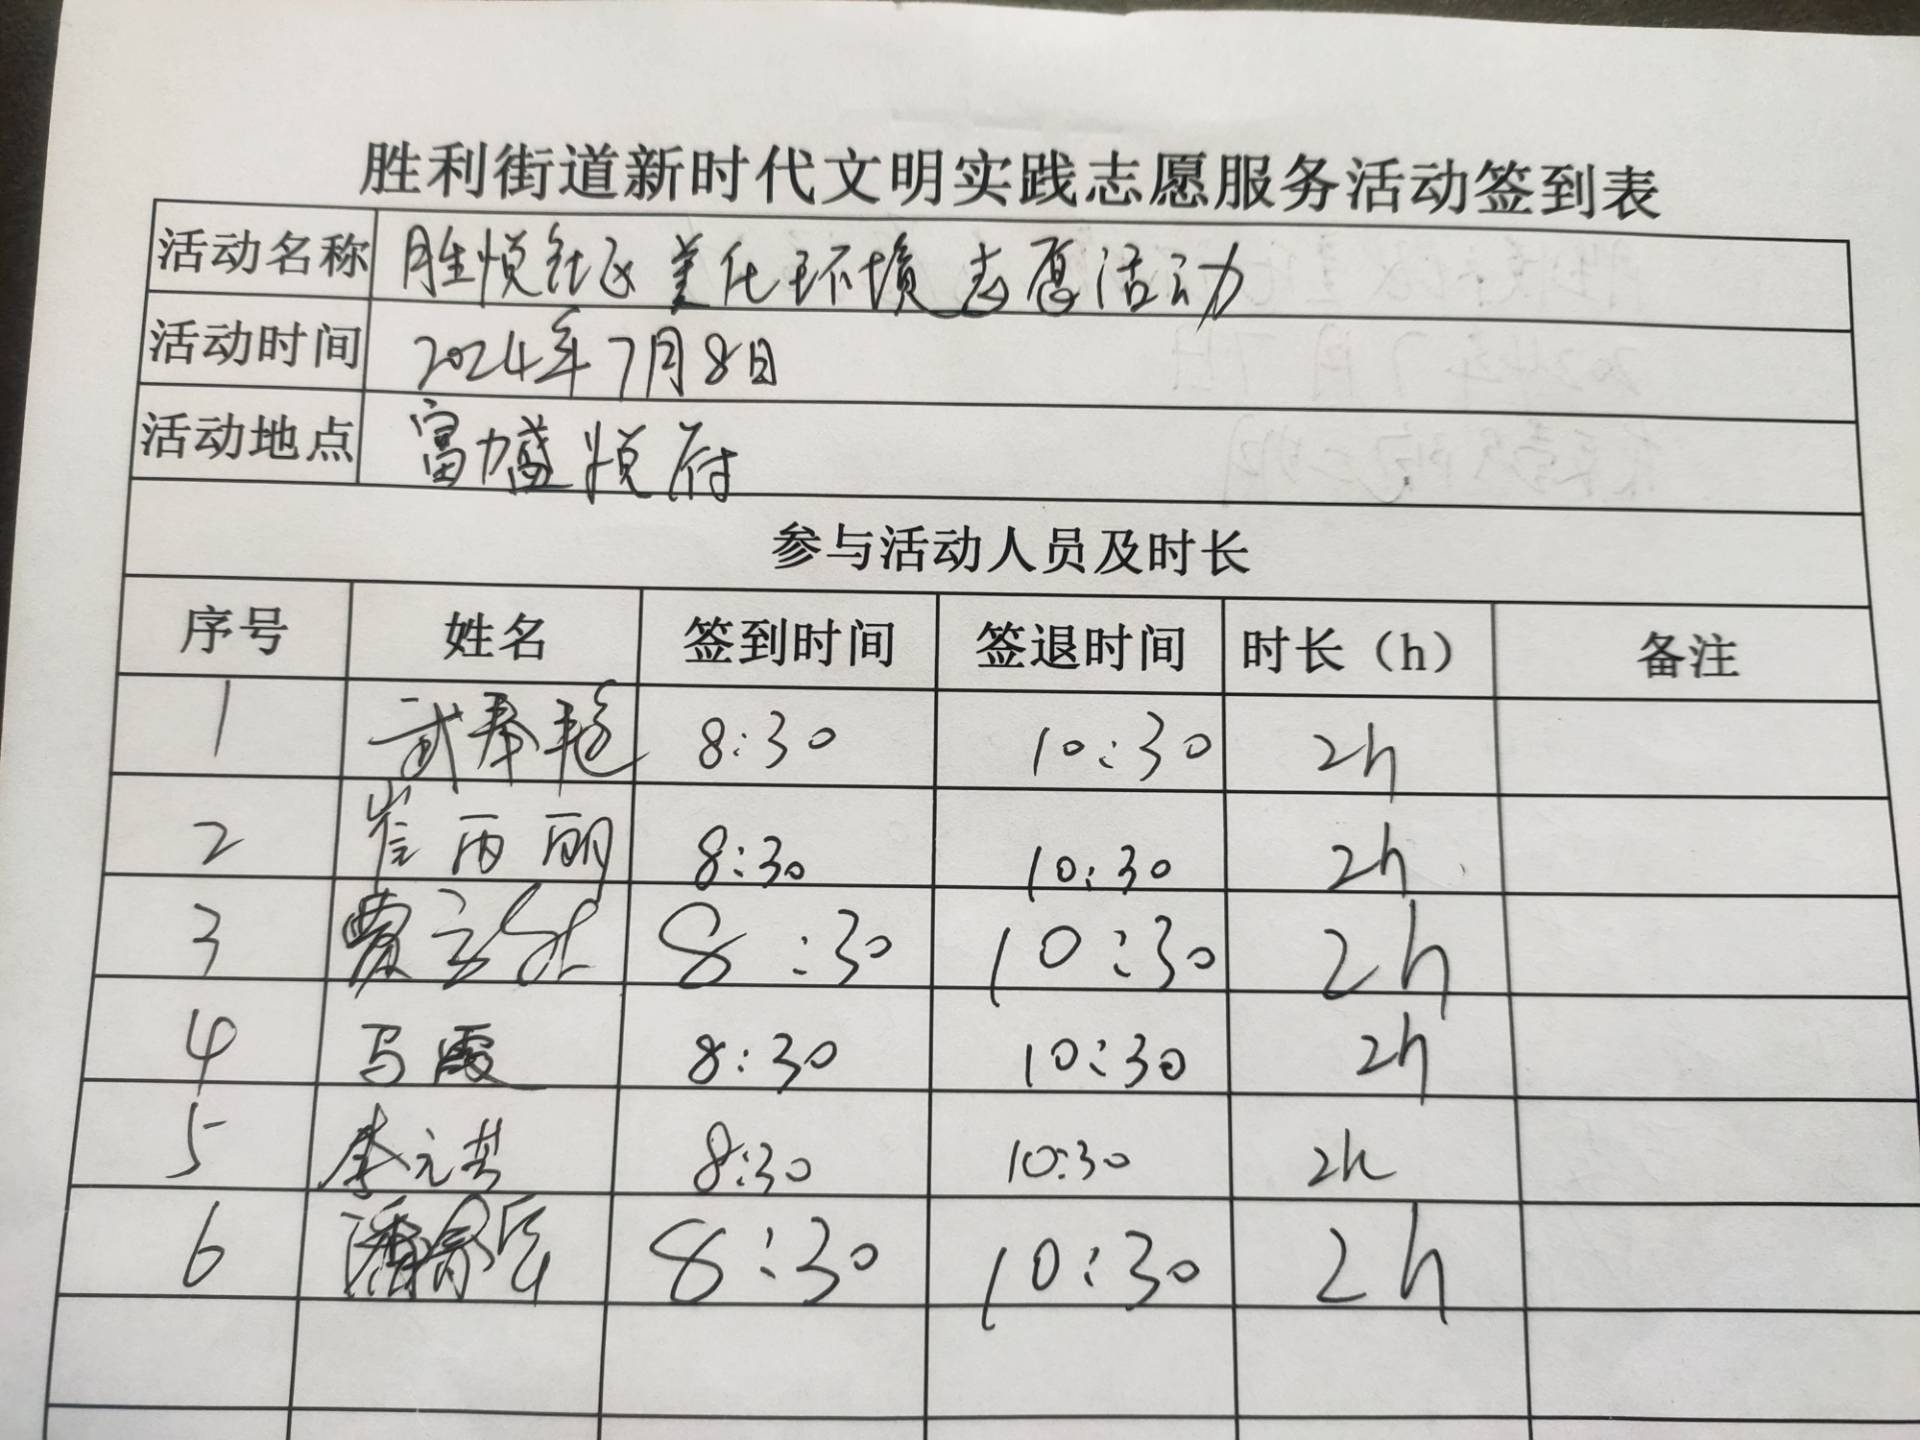 胜利街道新时代文明实践志愿服务活动签到表
活动名称 胜悦社区美化环境志愿活动
活动时间 2024年7月8日
活动地点 富力盛悦府
参与活动人员及时长
序号 姓名 签到时间 签退时间 时长（h） 备注
1 武奉艳 8:30 10:30 2h
2 崔丙丽 8:30 10:30 2h
3 8:30 10:30 2h
4 马霞 8:30 10:30 2h
5 李元芸 8:30 10:30 2h
6 8:30 10:30 2h